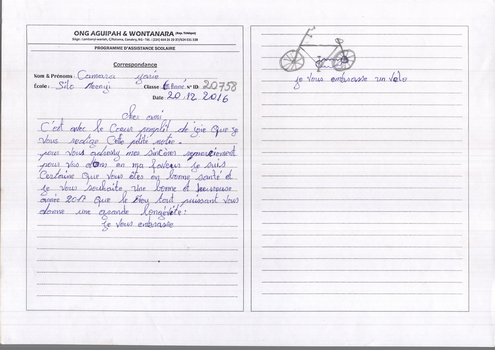 ONG AGUIPAH & WONTANARA
PROGRAMME D'ASSISTANCE SCOLAIRE
Correspondance
Nom & Prénoms: Camara
École: Sito Classe: N° ID: 20758
Date: 20.12.2016
Cher ami
C'est avec le Coeur remplit de joie que je
vous redige cette petite notre.
pour vous adressy mes sincères remerciement
pour vos dons en ma faveur je suis
Certaine que vous êtes en bonne santé et
je vous souhaite une bonne et heureuse
année 2017 que le tout puissant vous
donne une grande longévité:
je vous embrasse
je vous embrasse un vélo